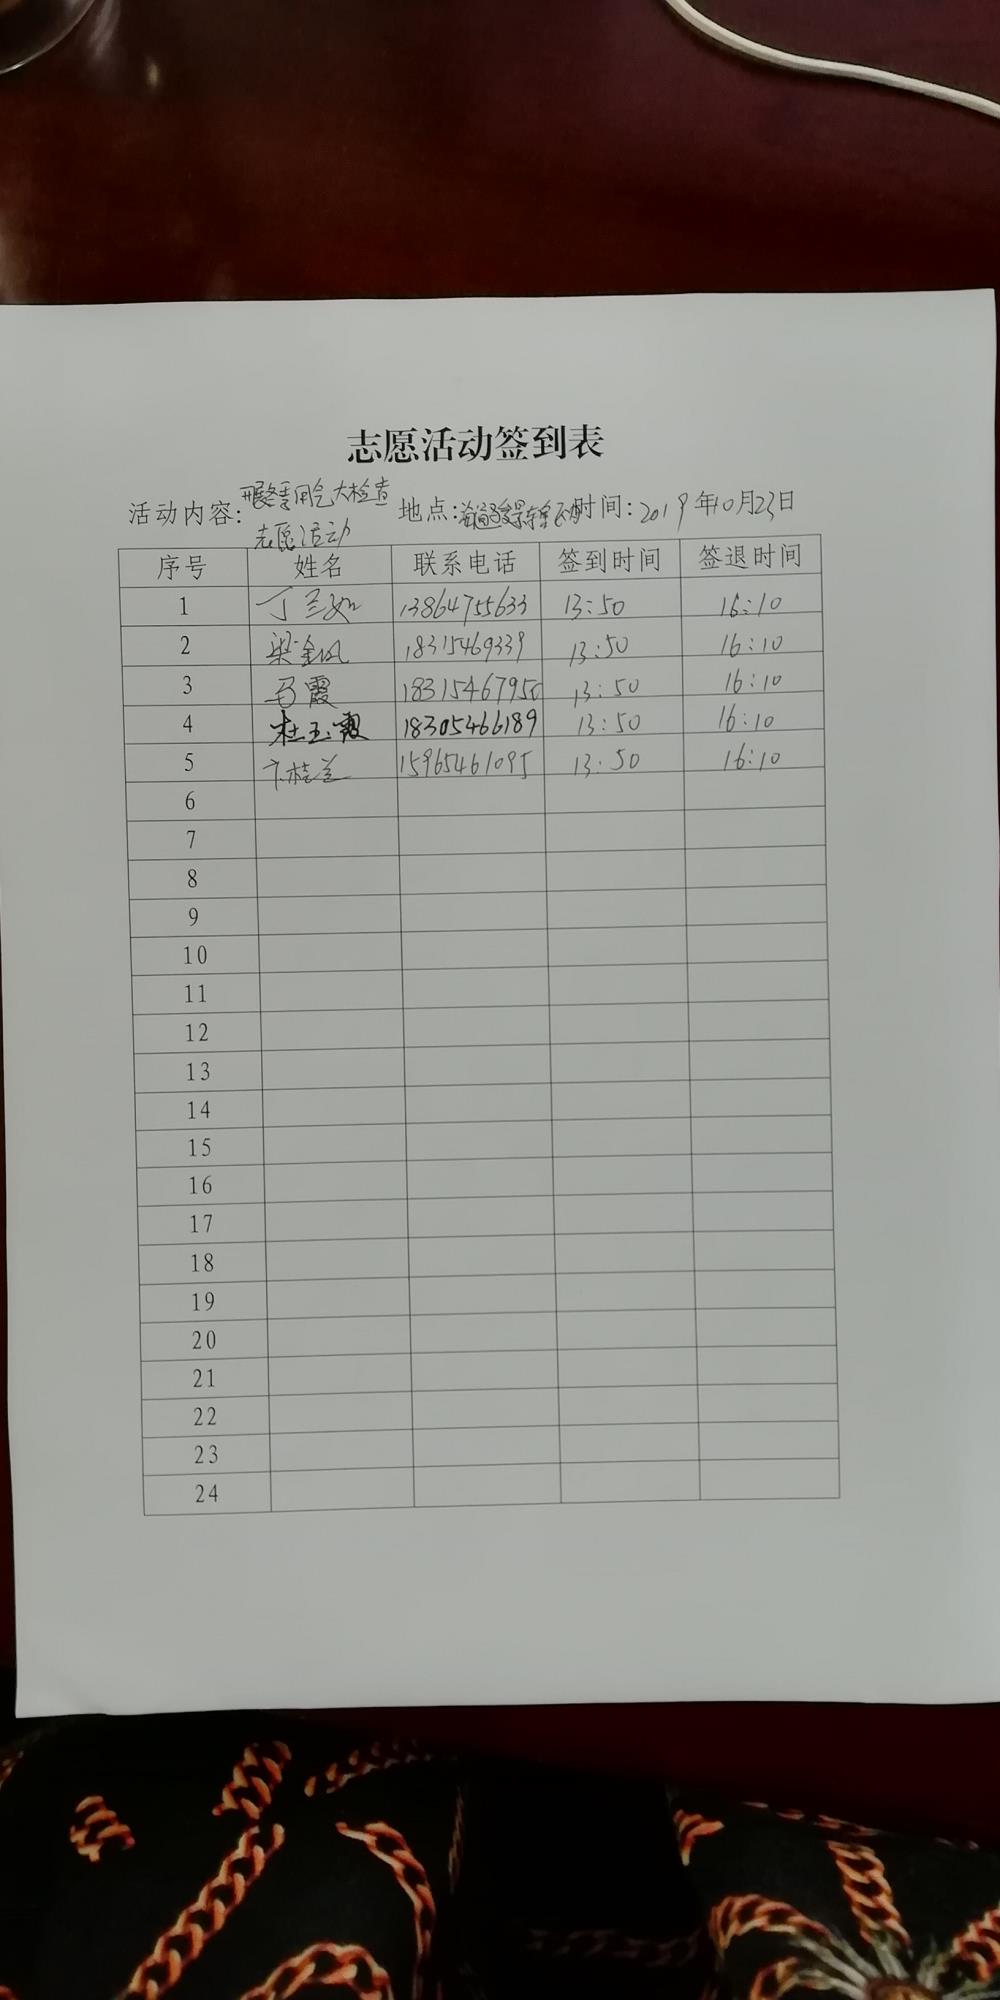 志愿活动签到表
活动内容:开展冬季用气大检查 地点: 时间:2019年10月23日
志愿活动
序号 姓名 联系电话 签到时间 签退时间
1 丁兰如 13864755633 13:50 16:10
2 梁金凤 18315469339 13:50 16:10
3 马霞 1831546795 13:50 16:10
4 杜玉霞 18305466189 13:50 16:10
5 卞桂兰 15965461095 13:50 16:10
6
7
8
9
10
11
12
13
14
15
16
17
18
19
20
21
22
23
24